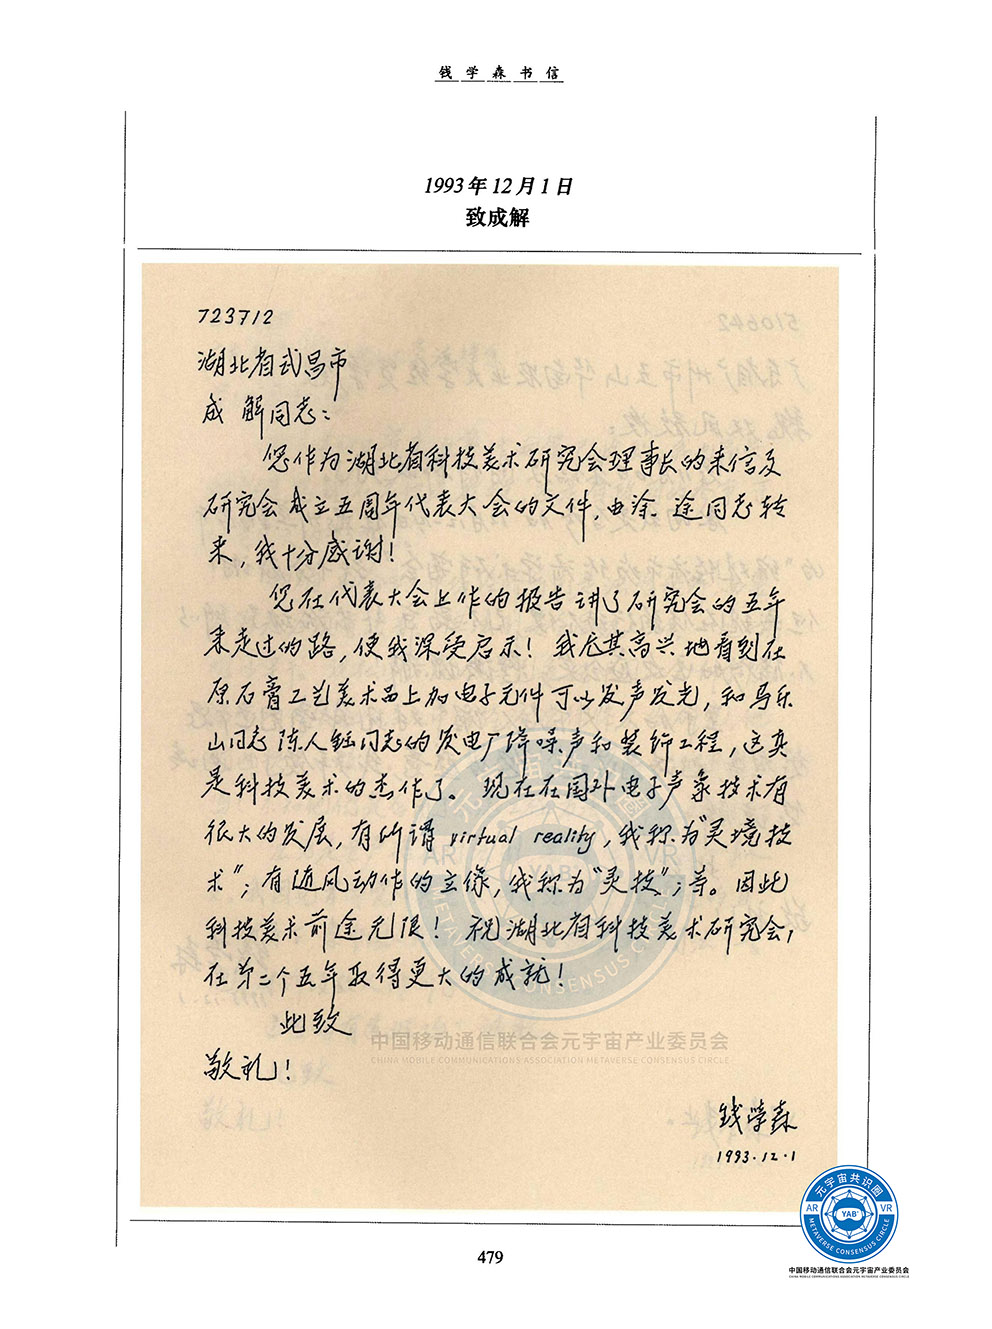 钱学森书信
1993年12月1日
致成解
723712
湖北省武昌市
成 解同志：
您作为湖北省科技美术研究会理事长的来信及
研究会成立五周年代表大会的文件，由涂 途同志转
来，我十分感谢！
您在代表大会上作的报告讲了研究会的五年
来走过的路，使我深受启示！我尤其高兴地看到在
原石膏工艺美术品上加电子元件可以发声发光，和马乐
山同志陈人钰同志的发电厂降噪声和装饰工程，这真
是科技美术的杰作了。现在在国外电子声象技术有
很大的发展，有所谓virtual reality，我称为“灵境技
术”；有随风动作的立像，我称为“灵技”；等。因此
科技美术前途无限！祝湖北省科技美术研究会，
在第二个五年取得更大的成就！
此致
敬礼！
钱学森
1993.12.1
元宇宙共识圈
AR
VR
YAB
METAVERSE CONSENSUS CIRCLE
中国移动通信联合会元宇宙产业委员会
CHINA MOBILE COMMUNICATIONS ASSOCIATION METAVERSE CONSENSUS CIRCLE
479
元宇宙共识圈
AR
VR
YAB
METAVERSE CONSENSUS CIRCLE
中国移动通信联合会元宇宙产业委员会
CHINA MOBILE COMMUNICATIONS ASSOCIATION METAVERSE CONSENSUS CIRCLE